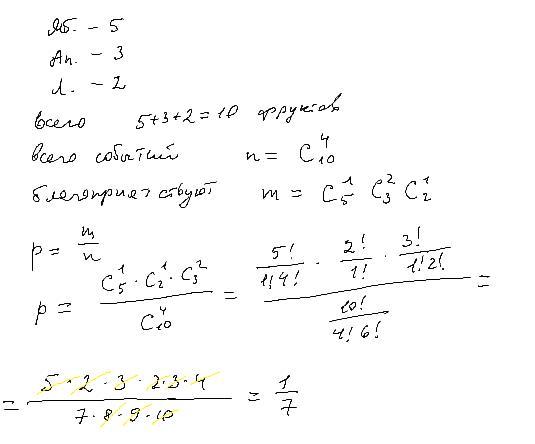 Яб. - 5
Ап. - 3
Л. - 2
Всего 5+3+2=10 фруктов
Всего событий n = C₁₀⁴
благоприятствуют m = C₅¹ C₃² C₂¹
p = m/n
p = (C₅¹ · C₂¹ · C₃²)/C₁₀⁴ = (5!/(1!4!) · 2!/1! · 3!/(1!2!))/(10!/(4!6!)) =
= (5·2·3·2·3·4)/(7·8·9·10) = 1/7